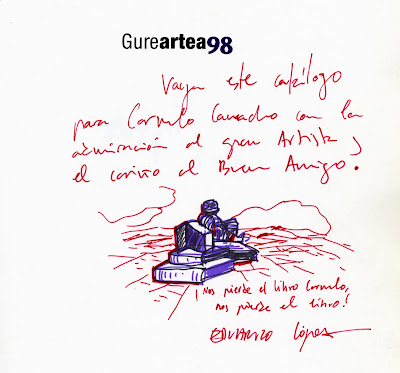 Gureartea98
Vaya este catálogo
para Cornelo Camacho con la
admiración al gran Artista y
el cariño al Buen Amigo.
¡Nos pierde el libro Cornelo,
nos pierde el libro!
EDUARDO López